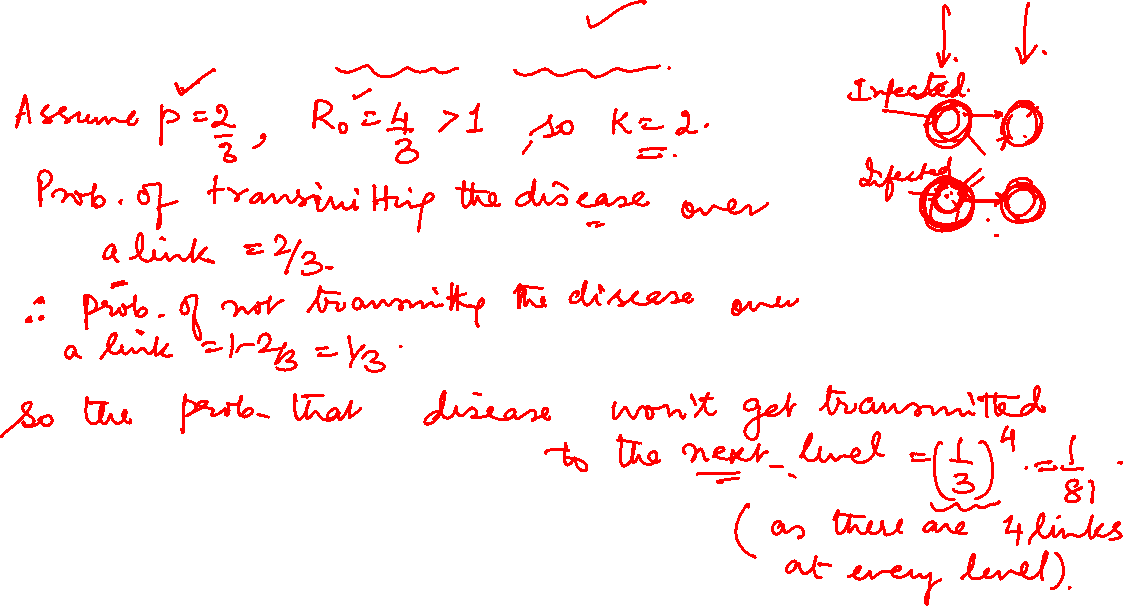 Assume p = 2/3, R₀ = 4/3 > 1, so K = 2.
Infected
Infected
Prob. of transmitting the disease over
a link = 2/3.
∴ prob. of not transmitting the disease over
a link = 1-2/3 = 1/3.
So the prob. that disease won't get transmitted
to the next level = (1/3)⁴ = 1/81.
(as there are 4 links
at every level).